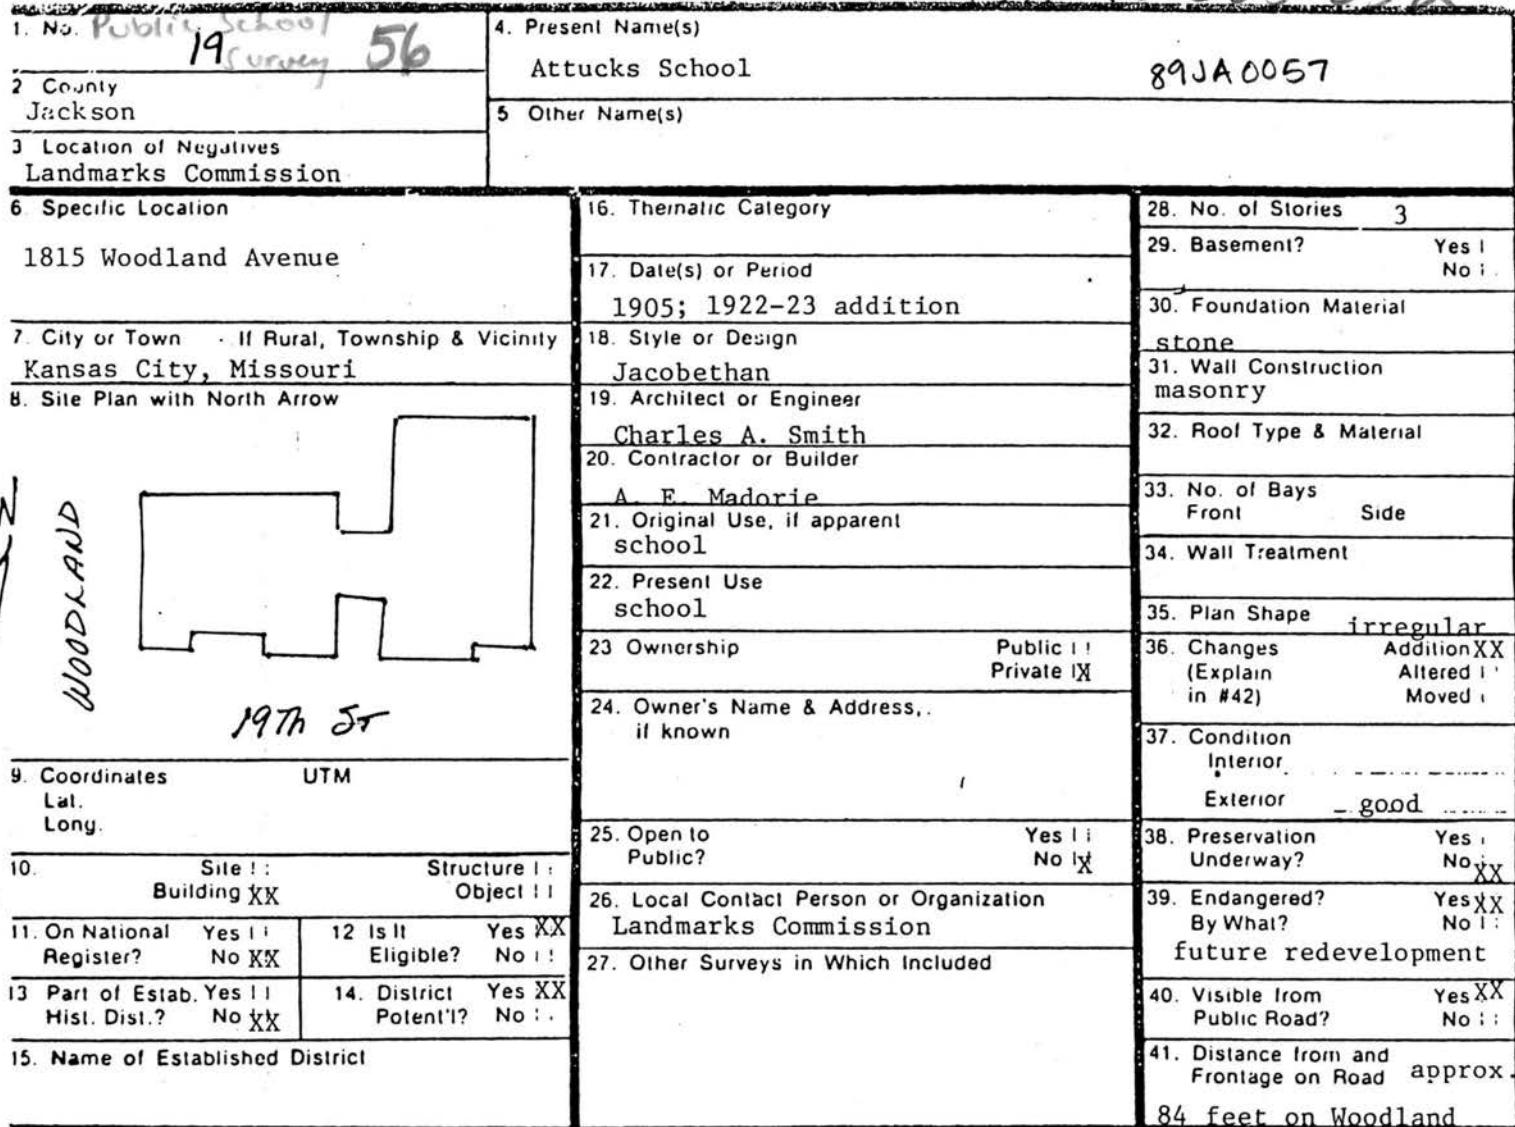 1. No. Public School
19 Survey 56
2 County
Jackson
3 Location of Negatives
Landmarks Commission
4. Present Name(s)
Attucks School
89JA0057
5 Other Name(s)
6. Specific Location
1815 Woodland Avenue
7. City or Town If Rural, Township & Vicinity
Kansas City, Missouri
8. Site Plan with North Arrow
N
WOODLAND
19Th ST
9. Coordinates UTM
Lat.
Long.
10. Site Structure
Building XX Object
11. On National Yes
Register? No XX
12 Is It Yes XX
Eligible? No
13 Part of Estab. Yes
Hist. Dist.? No XX
14. District Yes XX
Potent'l? No
15. Name of Established District
16. Thematic Category
17. Date(s) or Period
1905; 1922-23 addition
18. Style or Design
Jacobethan
19. Architect or Engineer
Charles A. Smith
20. Contractor or Builder
A. E. Madorie
21. Original Use, if apparent
school
22. Present Use
school
23 Ownership Public
Private X
24. Owner's Name & Address,
if known
25. Open to Yes
Public? No X
26. Local Contact Person or Organization
Landmarks Commission
27. Other Surveys in Which Included
28. No. of Stories 3
29. Basement? Yes
No
30. Foundation Material
stone
31. Wall Construction
masonry
32. Roof Type & Material
33. No. of Bays
Front Side
34. Wall Treatment
35. Plan Shape irregular
36. Changes Addition XX
(Explain Altered
in #42) Moved
37. Condition
Interior
Exterior good
38. Preservation Yes
Underway? No XX
39. Endangered? Yes XX
By What? No
future redevelopment
40. Visible from Yes XX
Public Road? No
41. Distance from and
Frontage on Road approx.
84 feet on Woodland